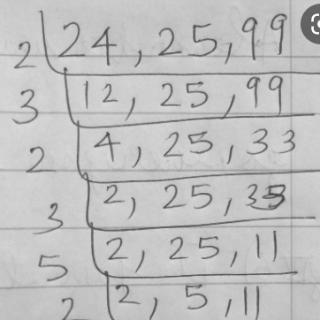 2 24, 25, 99
3 12, 25, 99
2 4, 25, 33
2, 25, 33
3 2, 25, 11
5 2, 5, 11
2